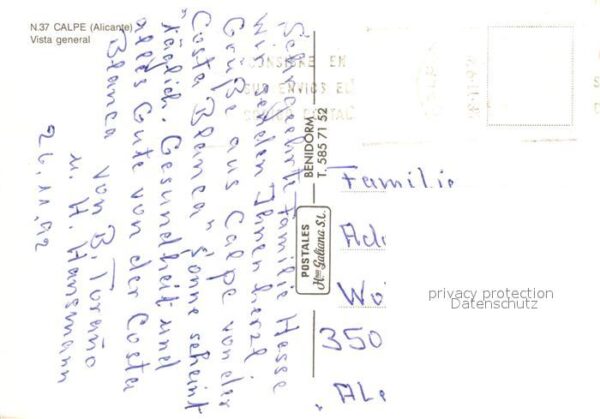 N.37 CALPE (Alicante)
Vista general
Sehr geehrte Familie Hesse
wir senden Ihnen herzl.
Grüße aus Calpe von der
Costa Blanca" Sonne scheint
täglich. Gesundheit und
alles Gute von der Costa
Blanca von B. Toraño
u. H. Hansmann
26.11.92
POSTALES
Hnos Galiana S.L.
BENIDORM
T. 585 71 52
CONSIGNE EN
SUS ENVIOS EL
POSTAL
Familie
Ad
Wo
350
Ale
privacy protection
Datenschutz